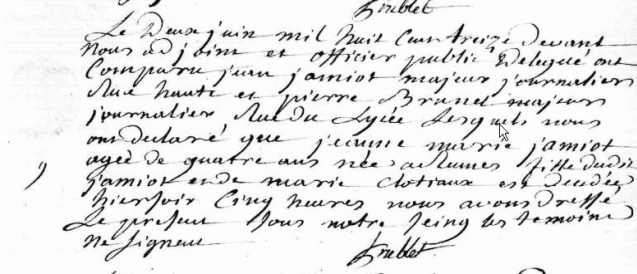 Le Deux juin mil huit Cent treize devant
Nous adjoint et officier public Delegué ont
Comparu jean jamiot majeur journalier
Rue haute et pierre Brunel majeur
journalier Rue Du Lycée Lesquels nous
ont declaré que jeanne marie jamiot
agée de quatre ans née a Rennes fille dudit
jamiot et de marie Clotiaux est decedée
hier soir Cinq heures nous avons Dressé
Le present Sous notre seing les temoins
Ne signent